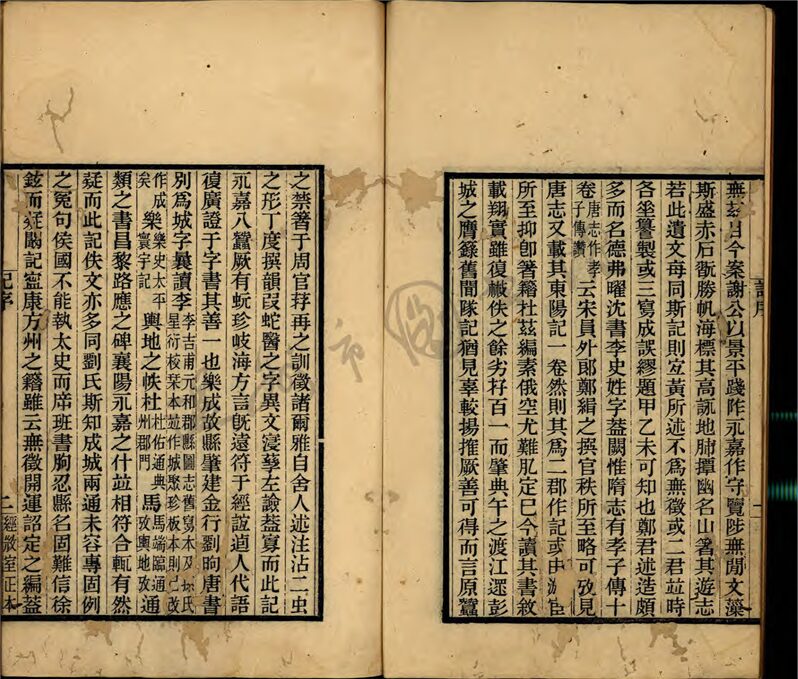 無𢾗日今案謝公以景平踐阼永嘉作守覽陟無閒文藻
斯盛赤石翫勝帆海標其高詠地肺撢幽名山箸其遊志
若此遺文毋同斯記則宐黃所述不爲無徵或二君竝時
各坓纂製或三寫成誤繆題甲乙未可知也鄭君述造頗
多而名德弗曜沈書李史姓字葢闕惟隋志有孝子傳十
卷唐志作孝子傳讚云宋員外郎鄭緝之撰官秩所至略可攷見
唐志又載其東陽記一卷然則其爲二郡作記或由游宦
所至抑卽箸籍杜茲編素俄空尤難肊定巳今讀其書敘
載翔實雖復檝佚之餘劣杍百一而肇典午之渡江遝彭
城之膺籙舊聞隊記猶見辜較揚搉厥善可得而言原蠶
之禁箸于周官𦭘再之訓徵諸爾雅自舍人述注沾二虫
之形丁度撰韻叚蛇醫之字異文寖孳左譣葢寡而此記
永嘉八蠶厥有蚖珍岐海方言旣遠符于經誼逌人代語
復廣證于字書其善一也樂成故縣肇建金行劉昫唐書
別爲城字曩讀李李吉甫元和郡縣圖志舊寫本及孫氏星衍校栞本竝作城聚珍板本則已改作成樂樂史太平寰宇記輿地之帙杜杜佑通典州郡門馬馬端臨通攷輿地攷通
類之書昌黎路應之碑襄陽永嘉之什竝相符合輒有然
疑而此記佚文亦多同劉氏斯知成城兩通未容專固例
之冤句侯國不能執太史而㡿班書朐忍縣名固難信徐
鉉而疑闞記寍康方州之籍雖云無徵開運詔定之編葢
記序
二
經𢽾室正本